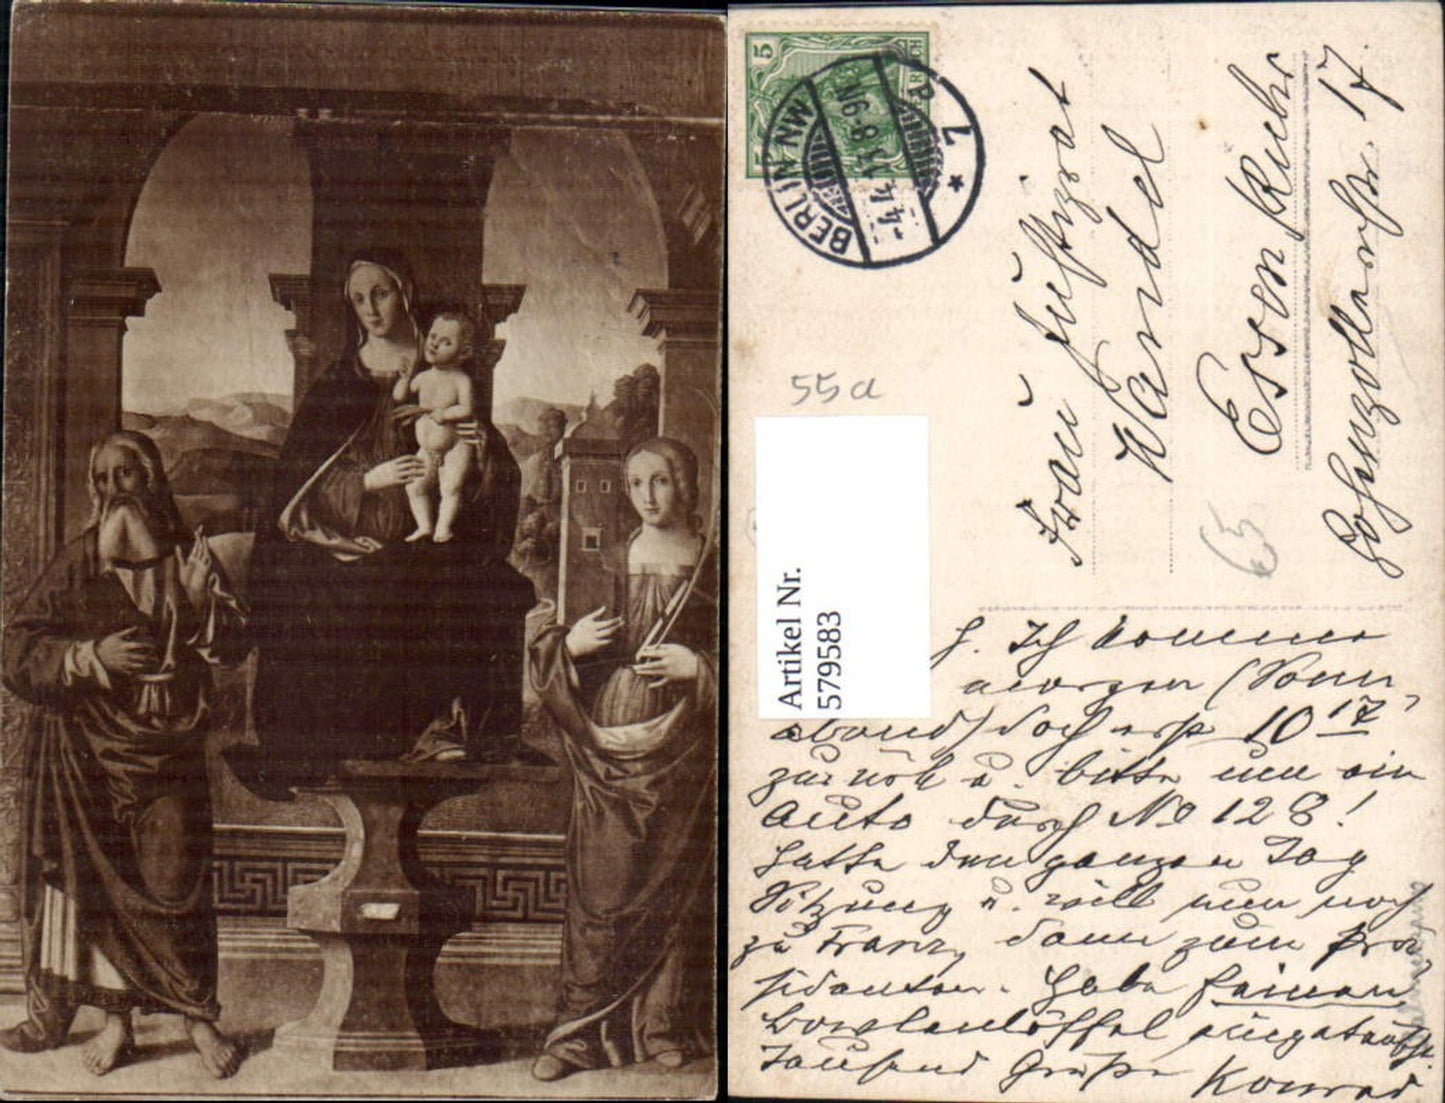 5
REICH
BERLIN NW
-4.4.11.8-9N
* 7
Frau Justizrat
Wandel
Essen Ruhr
Hohenzollernstr. 17.
55a
65
Artikel Nr.
579583
Ich komme
morgen (Sonn-
abend) doch erst 10 17
zurück u. bitte um ein
Auto durch No 128!
Hatte den ganzen Tag
Sitzung u. will nun noch
zu Franz, dann zum Prä-
sidenten. Habe
Tausend Grüße Konrad